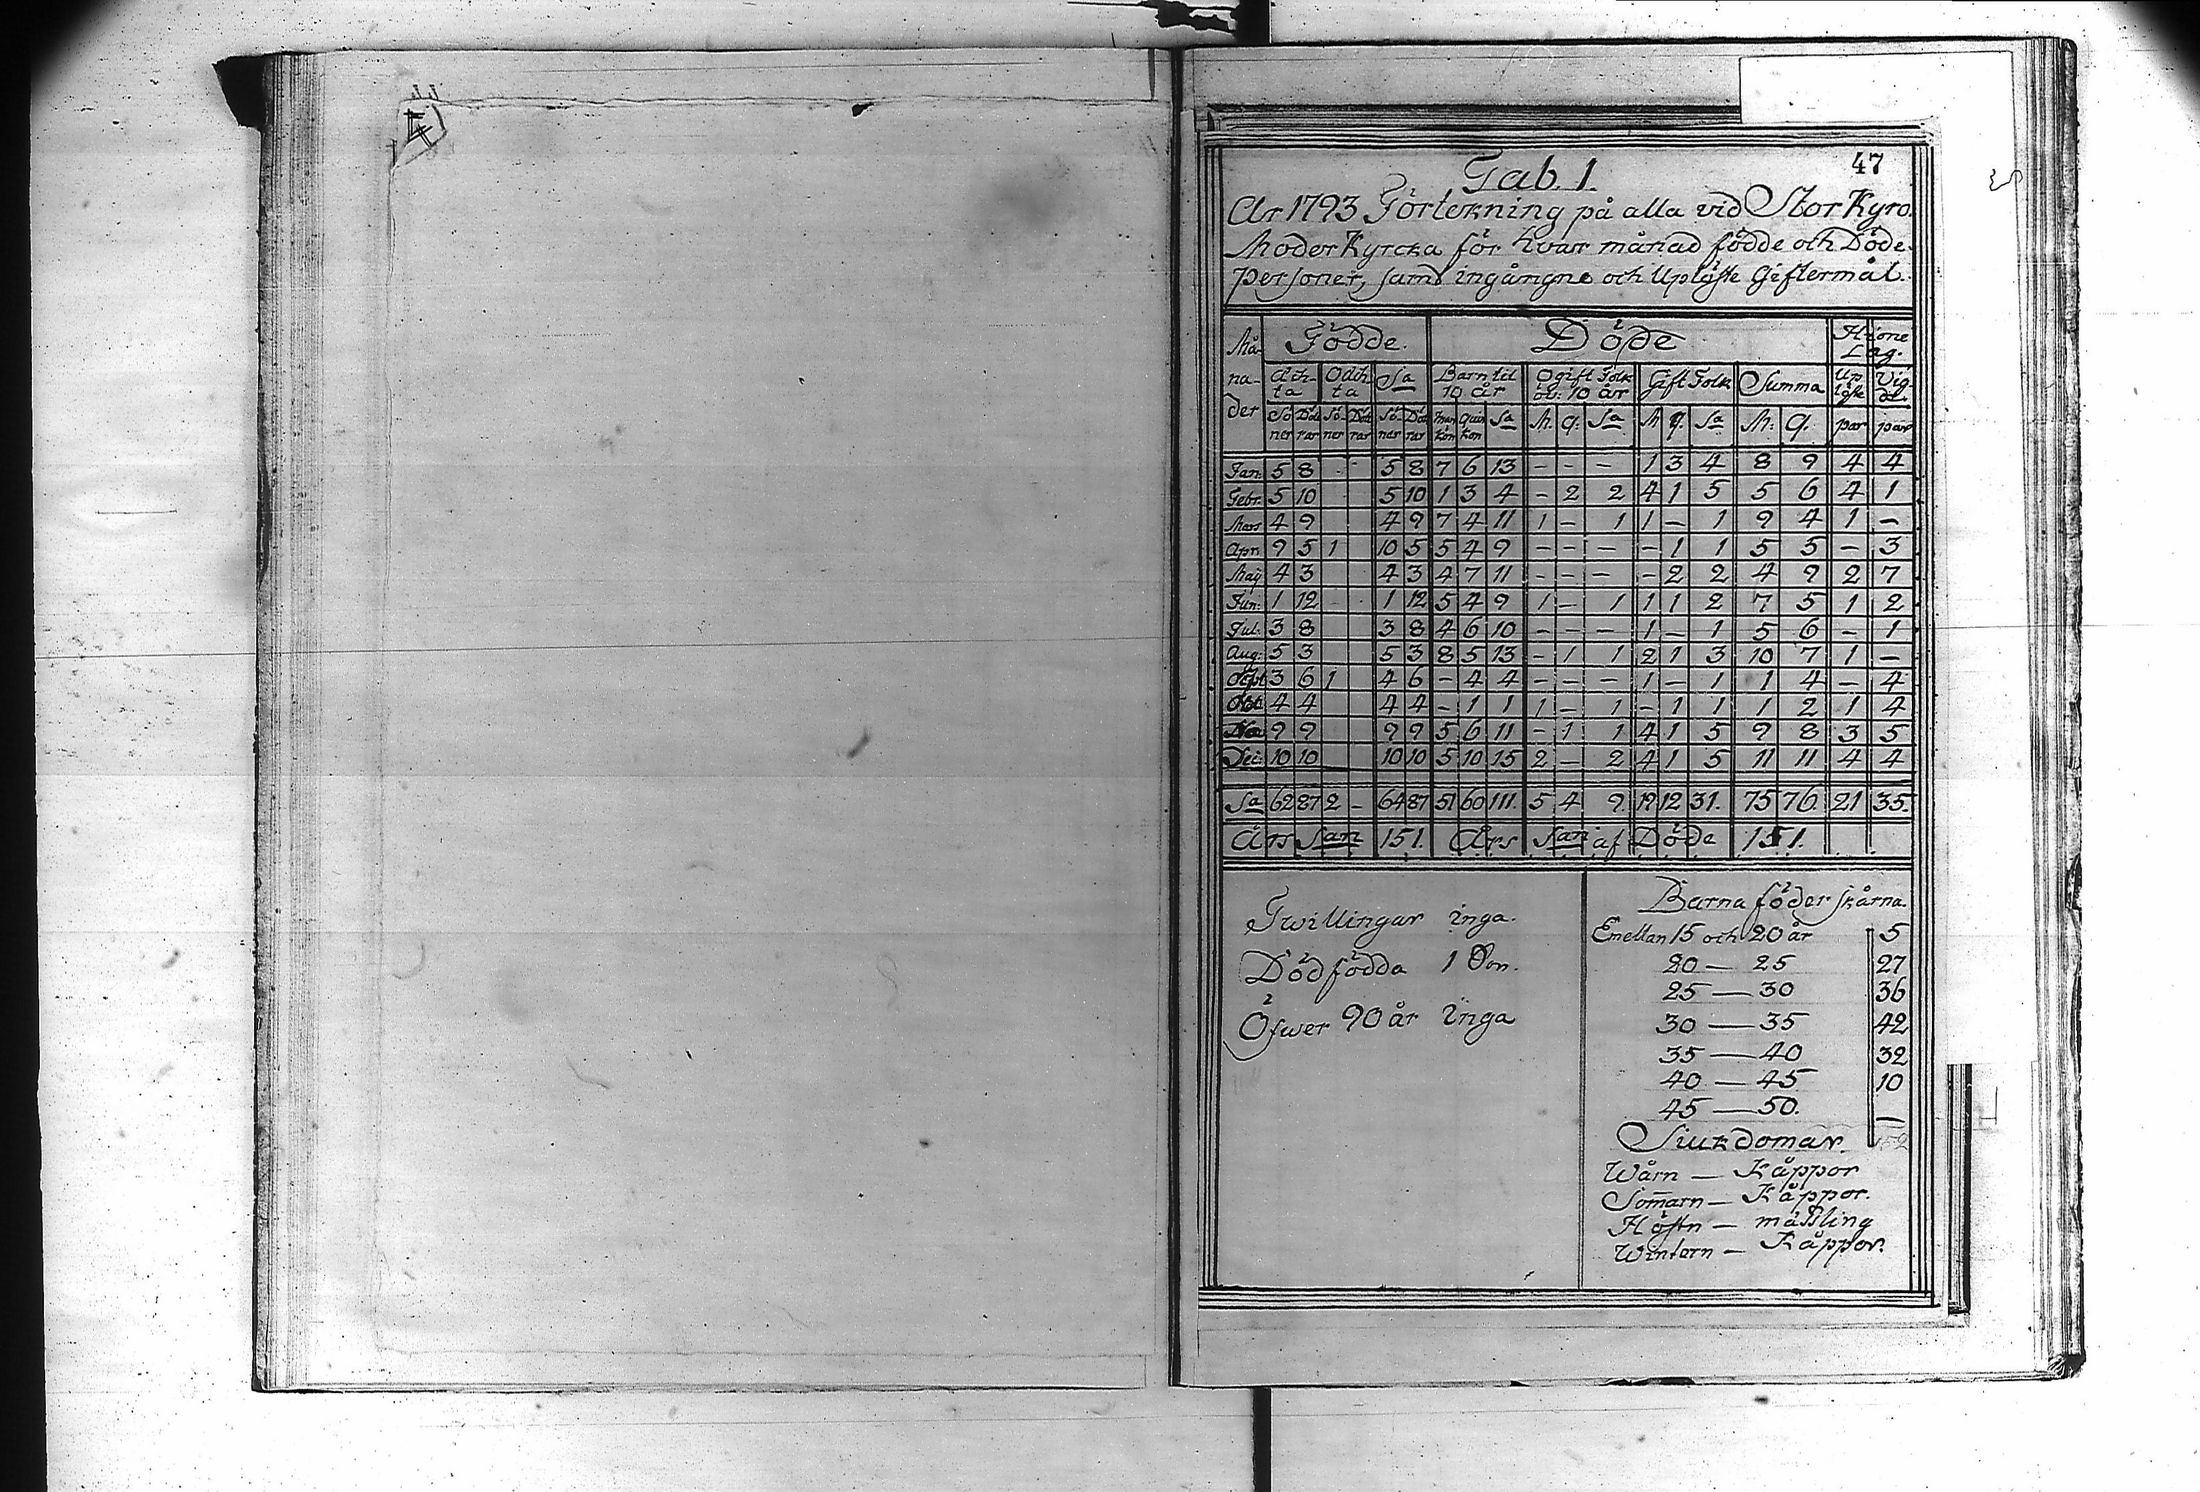 47
Tab. 1.
År 1793 Förtekning på alla vid Stor Kyro
Moder Kyrcka för hvar månad födde och Döde
Personer, samt ingångne och Uplöste Giftermål.
Må- Födde. Döde Hione Lag.
na- Äch-ta Oäch ta Sa Barn til 10 år Ogift Folk öv: 10 år Gift Folk Summa Up löste Vig de.
der Sö ner Dött rar Sö- ner Dött rar Sö- ner Dött rar man kön Quin kön Sa M. Q: Sa M Q. Sa M: Q. par par
Jan: 5 8 5 8 7 6 13 - - - 1 3 4 8 9 4 4
Febr. 5 10 5 10 1 3 4 - 2 2 4 1 5 5 6 4 1
Mars 4 9 4 9 7 4 11 1 - 1 1 - 1 9 4 1 -
Apr. 9 5 1 10 5 5 4 9 - - - - 1 1 5 5 - 3
Maij 4 3 4 3 4 7 11 - - - - 2 2 4 9 2 7
Jun: 1 12 1 12 5 4 9 1 - 1 1 1 2 7 5 1 2
Jul: 3 8 3 8 4 6 10 - - - 1 - 1 5 6 - 1
Aug: 5 3 5 3 8 5 13 - 1 1 2 1 3 10 7 1 -
Sept 3 6 1 4 6 - 4 4 - - - 1 - 1 1 4 - 4
Oct 4 4 4 4 - 1 1 1 - 1 - 1 1 1 2 1 4
9 9 9 9 5 6 11 - 1 1 4 1 5 9 8 3 5
Dec: 10 10 10 10 5 10 15 2 - 2 4 1 5 11 11 4 4
Sa 62 87 2 - 64 87 51 60 111. 5 4 9. 19 12 31. 75 76. 21 35.
Års Sam 151. Års Sam af Döde 151.
Twillingar inga.
Dödfödda 1 Son.
Öfwer 90 år inga
Barnaföderskårna
Emellan 15 och 20 år 5
20 — 25 27
25 — 30 36
30 — 35 42
35 — 40 32
40 — 45 10
45 — 50. —
Siukdomar. 152
Wårn — Kåppor
Som̅arn — Kåppor.
Höstn — mässling
Wintern — Kåppor.